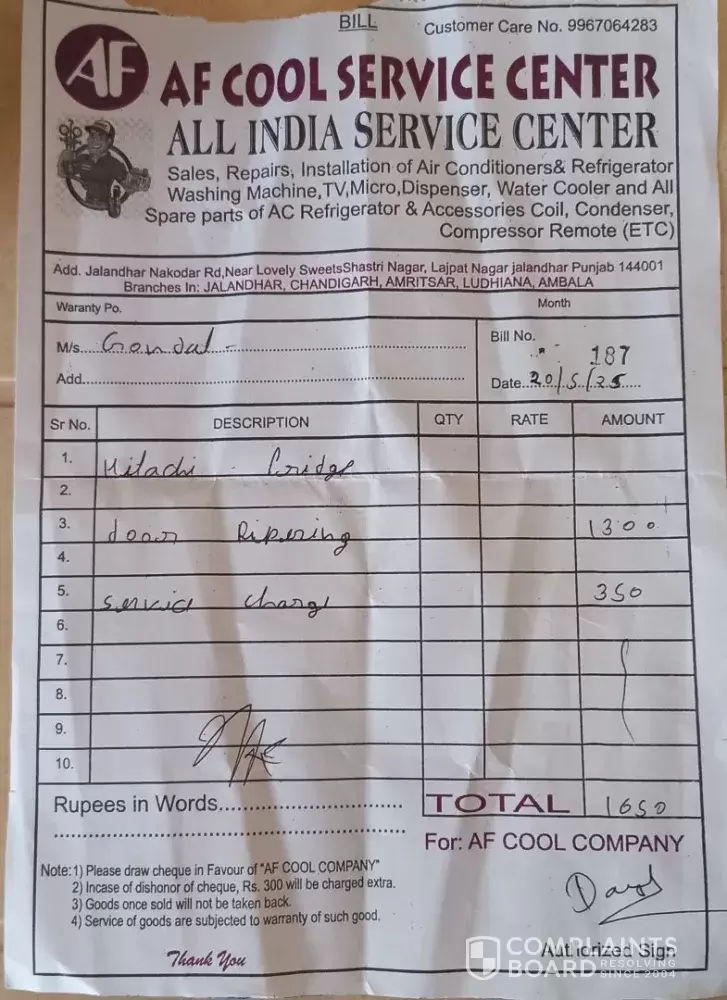 BILL
Customer Care No. 9967064283
AF
AF COOL SERVICE CENTER
ALL INDIA SERVICE CENTER
Sales, Repairs, Installation of Air Conditioners& Refrigerator
Washing Machine,TV,Micro,Dispenser, Water Cooler and All
Spare parts of AC Refrigerator & Accessories Coil, Condenser,
Compressor Remote (ETC)
Add. Jalandhar Nakodar Rd,Near Lovely SweetsShastri Nagar, Lajpat Nagar jalandhar Punjab 144001
Branches In: JALANDHAR, CHANDIGARH, AMRITSAR, LUDHIANA, AMBALA
Waranty Po. Month
M/s. Gondal -
Bill No. 187
Add.
Date. 20/5/25
Sr No. DESCRIPTION QTY RATE AMOUNT
1. Hitachi - fridge
2.
3. door Ripering 1300
4.
5. service charge 350
6.
7.
8.
9.
10.
Rupees in Words
TOTAL 1650
For: AF COOL COMPANY
Note: 1) Please draw cheque in Favour of "AF COOL COMPANY"
2) Incase of dishonor of cheque, Rs. 300 will be charged extra.
3) Goods once sold will not be taken back.
4) Service of goods are subjected to warranty of such good.
Thank You
Authorized Sign
COMPLAINTS
BOARD RESOLVING
SINCE 2004